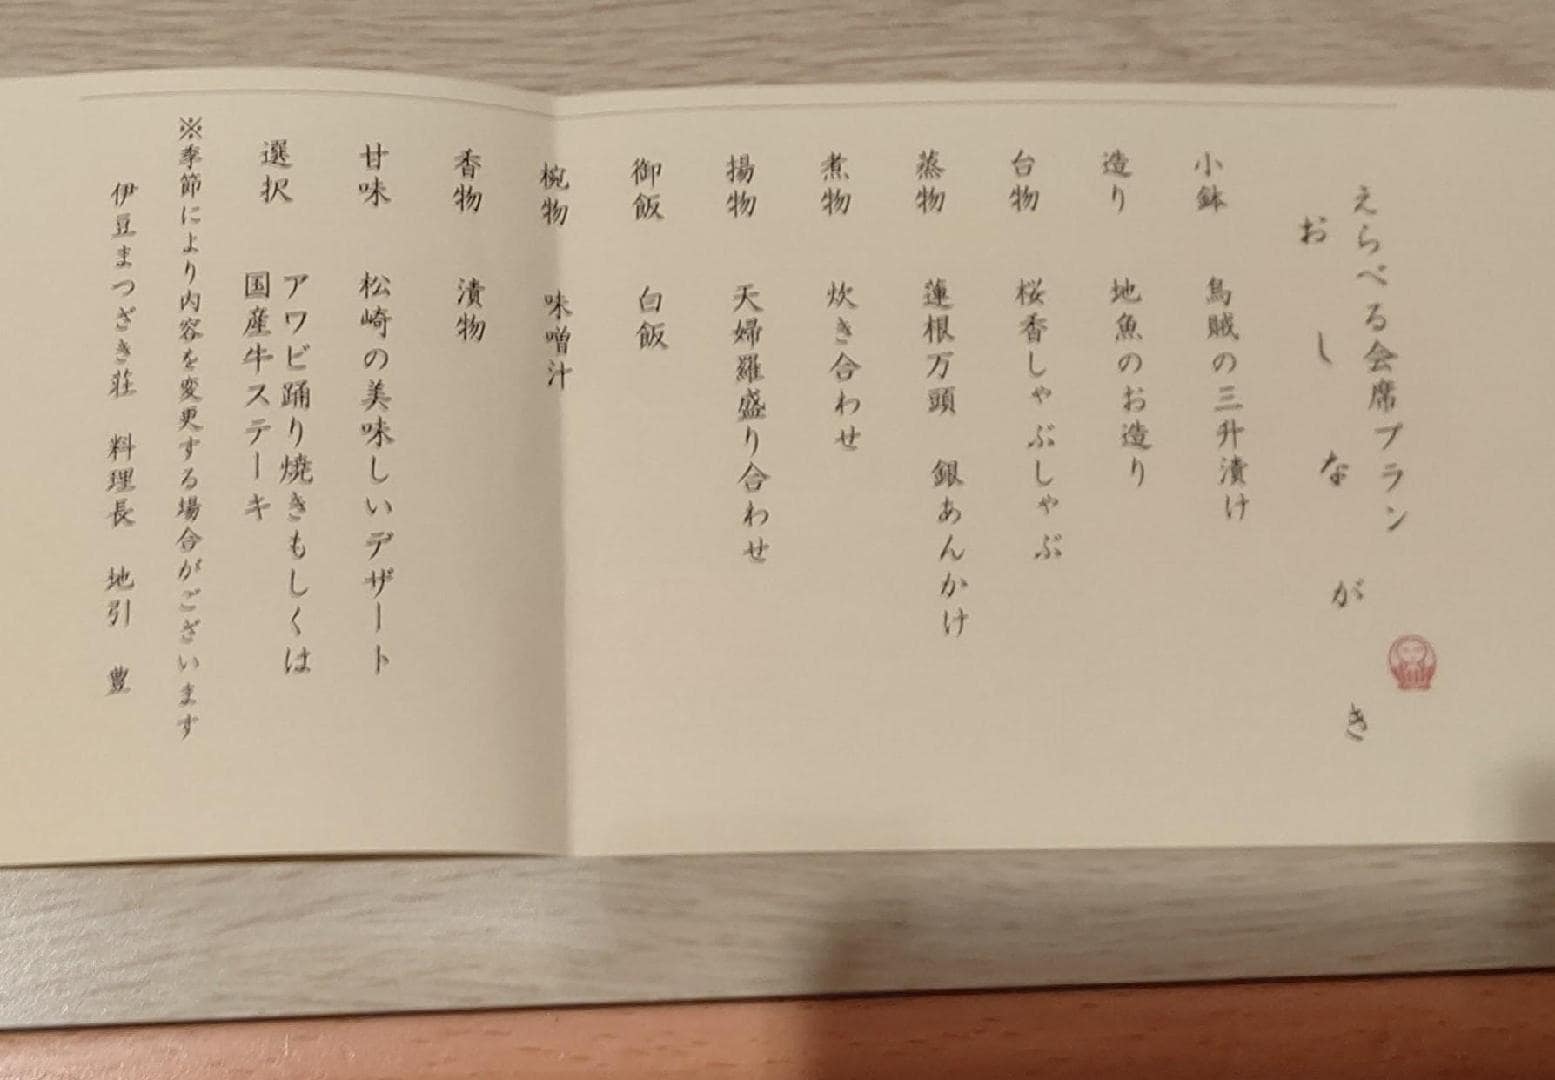 えらべる会席プラン
おしながき
小鉢　烏賊の三升漬け
造り　地魚のお造り
台物　桜香しゃぶしゃぶ
蒸物　蓮根万頭　銀あんかけ
煮物　炊き合わせ
揚物　天婦羅盛り合わせ
御飯　白飯
椀物　味噌汁
香物　漬物
甘味　松崎の美味しいデザート
選択　アワビ踊り焼きもしくは
国産牛ステーキ
※季節により内容を変更する場合がございます
伊豆まつざき荘　料理長　地引　豊